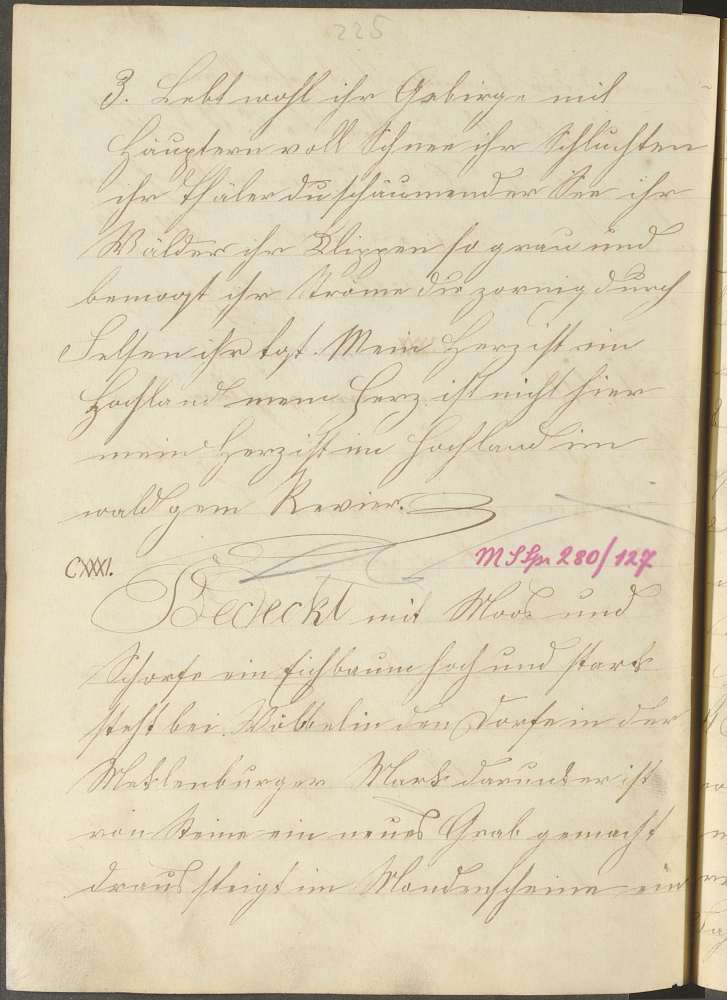 225
3. Lebt wohl ihr Gebirge mit
Häuptern voll Schnee ihr Schluchten
ihr Thäler du schäumender See ihr
Wälder ihr Klippen so grau und
bemoost ihr Ströme die zornig durch
Felsen ihr tost. Mein Herz ist im
Hochland mein Herz ist nicht hier
mein Herz ist im Hochland im
waldgem Revier.
MSSpr 280/127
CXXXI.
Bedeckt mit Moos und
Schorfe ein Eichbaum hoch und stark
steht bei Wöbbelin den Dorfe in der
Meklenburger Mark darunter ist
von Steine ein neues Grab gemacht
draus steigt im Mondenscheine ein